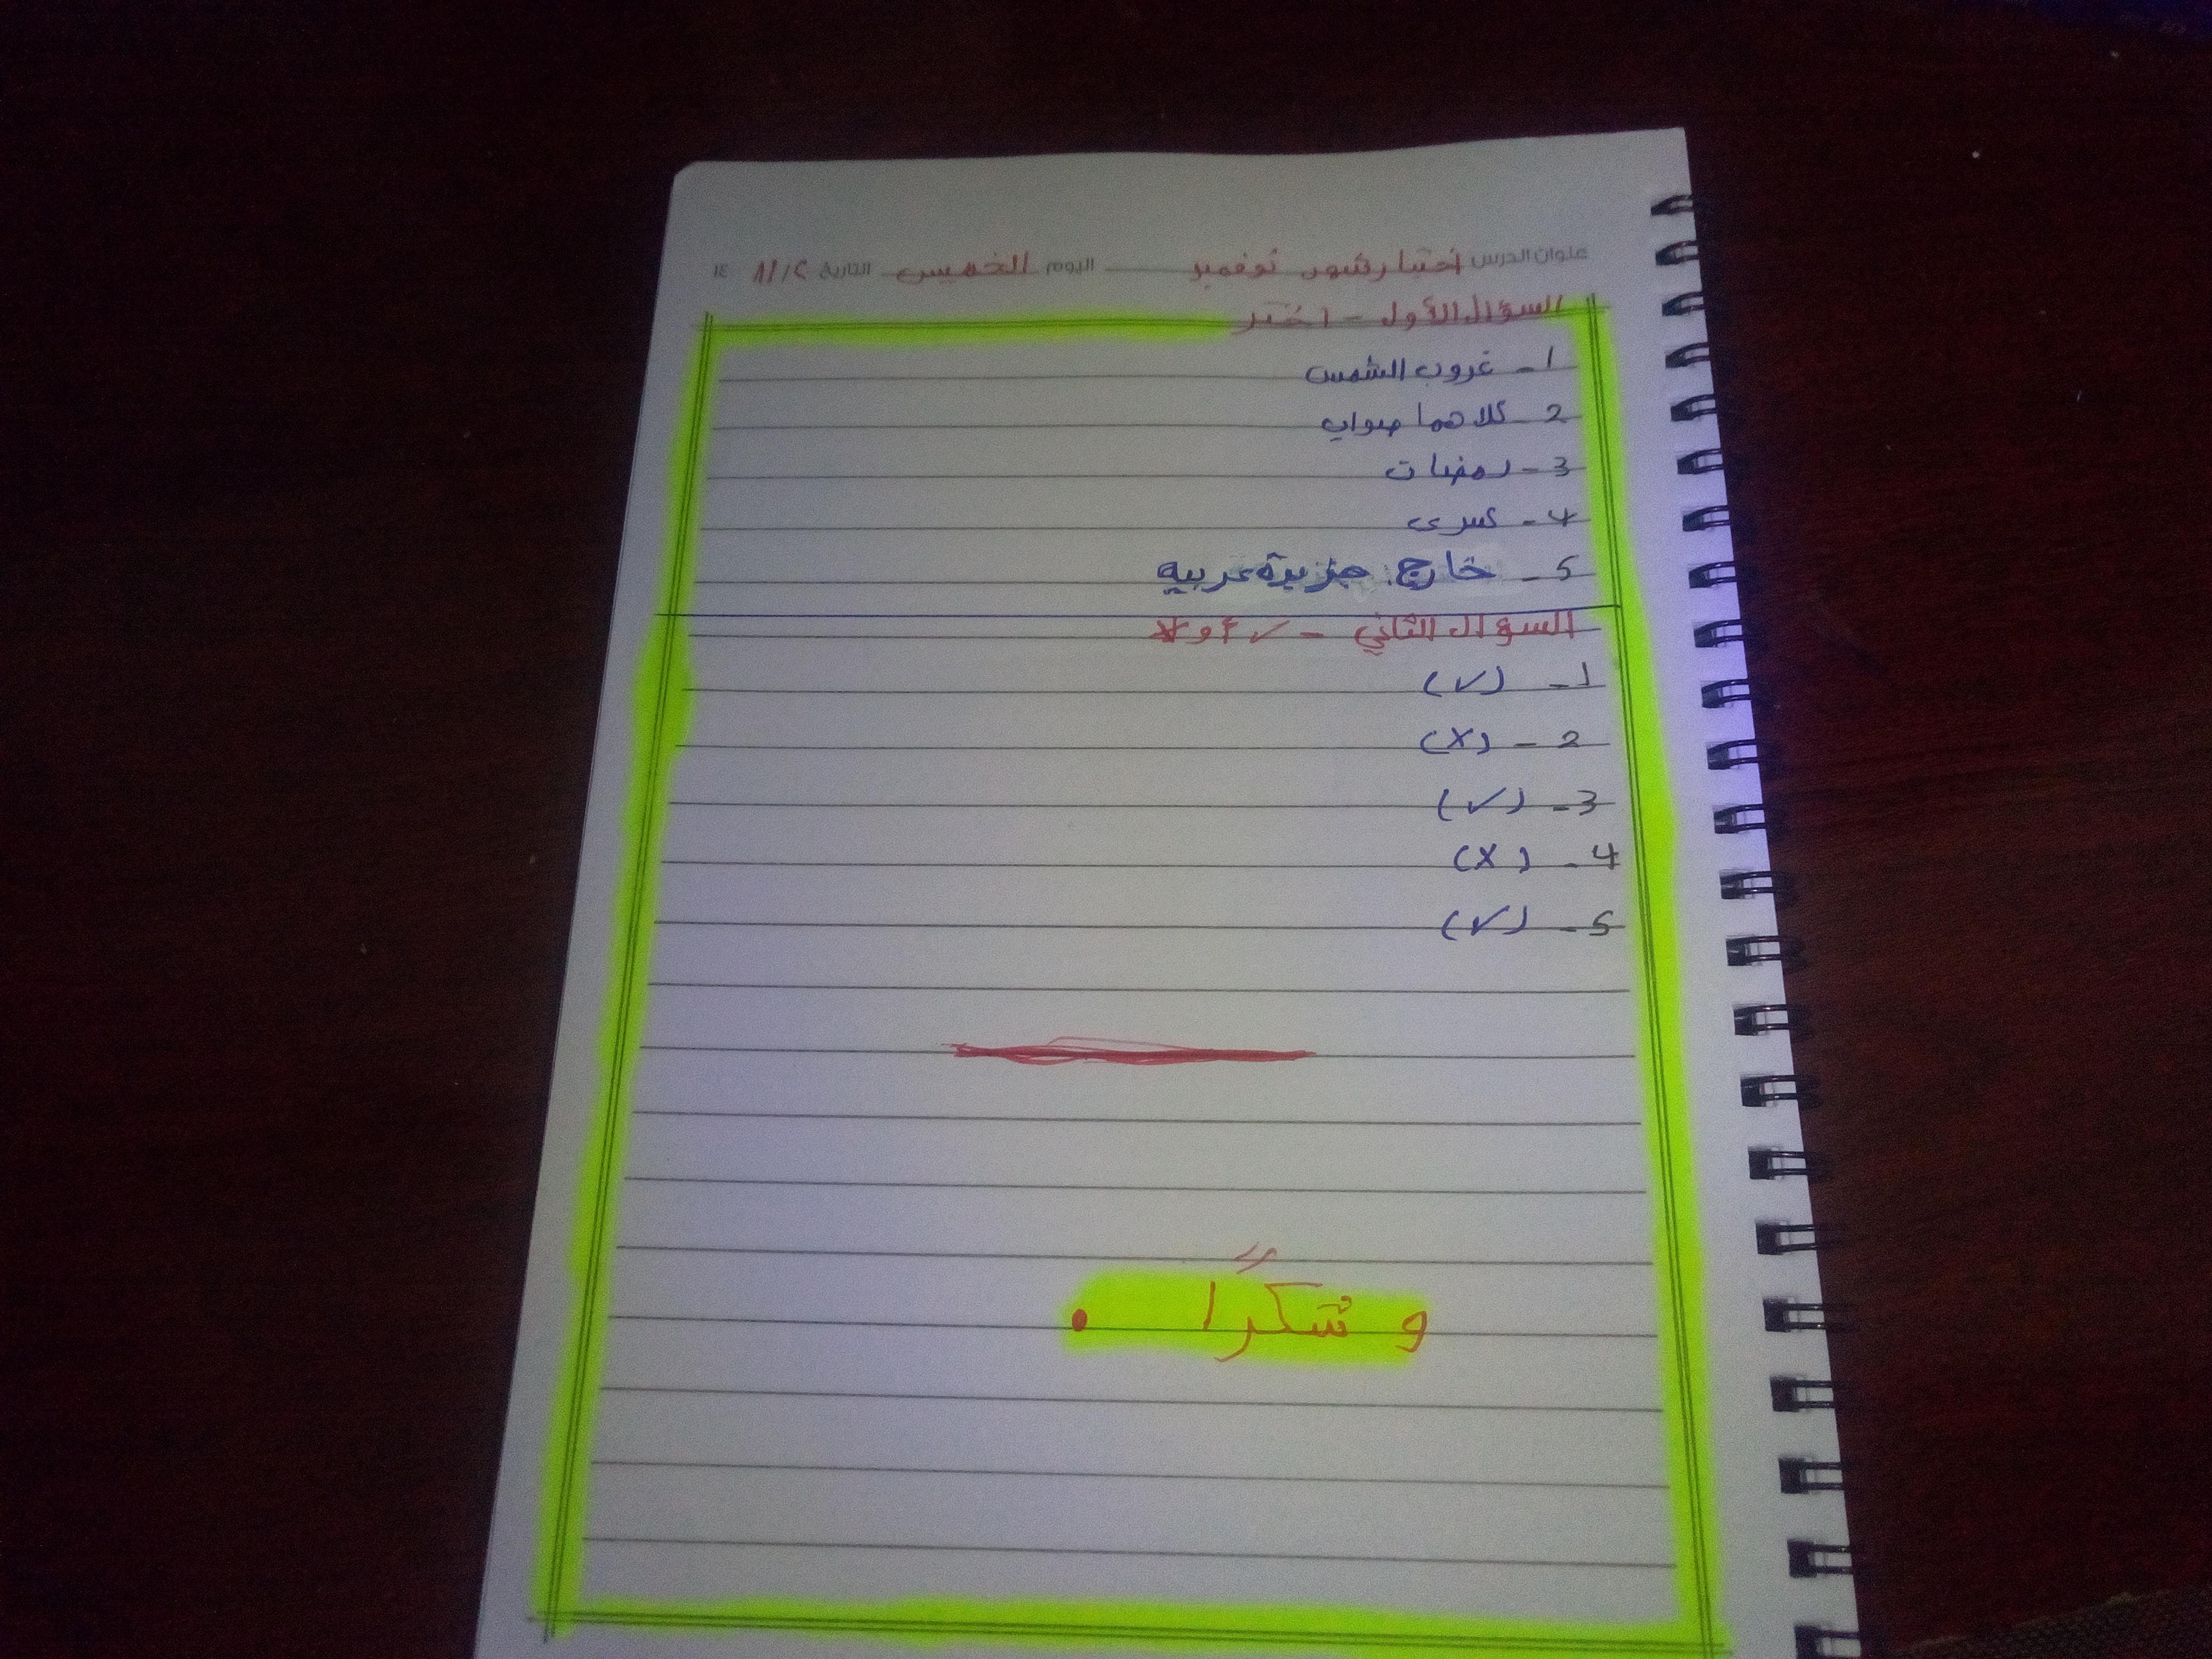 عنوان الدرس اختبار شهر نوفمبر اليوم الخميس التاريخ ١١/٢ ١٤
السؤال الأول - اختر
1- غروب الشمس
2- كلاهما صواب
3- رمضان
4- كسرى
5- خارج جزيرة عربيه
السؤال الثاني - ✓ أو ×
1- (✓)
2- (X)
3- (✓)
4- (X)
5- (✓)
و شكرًا .